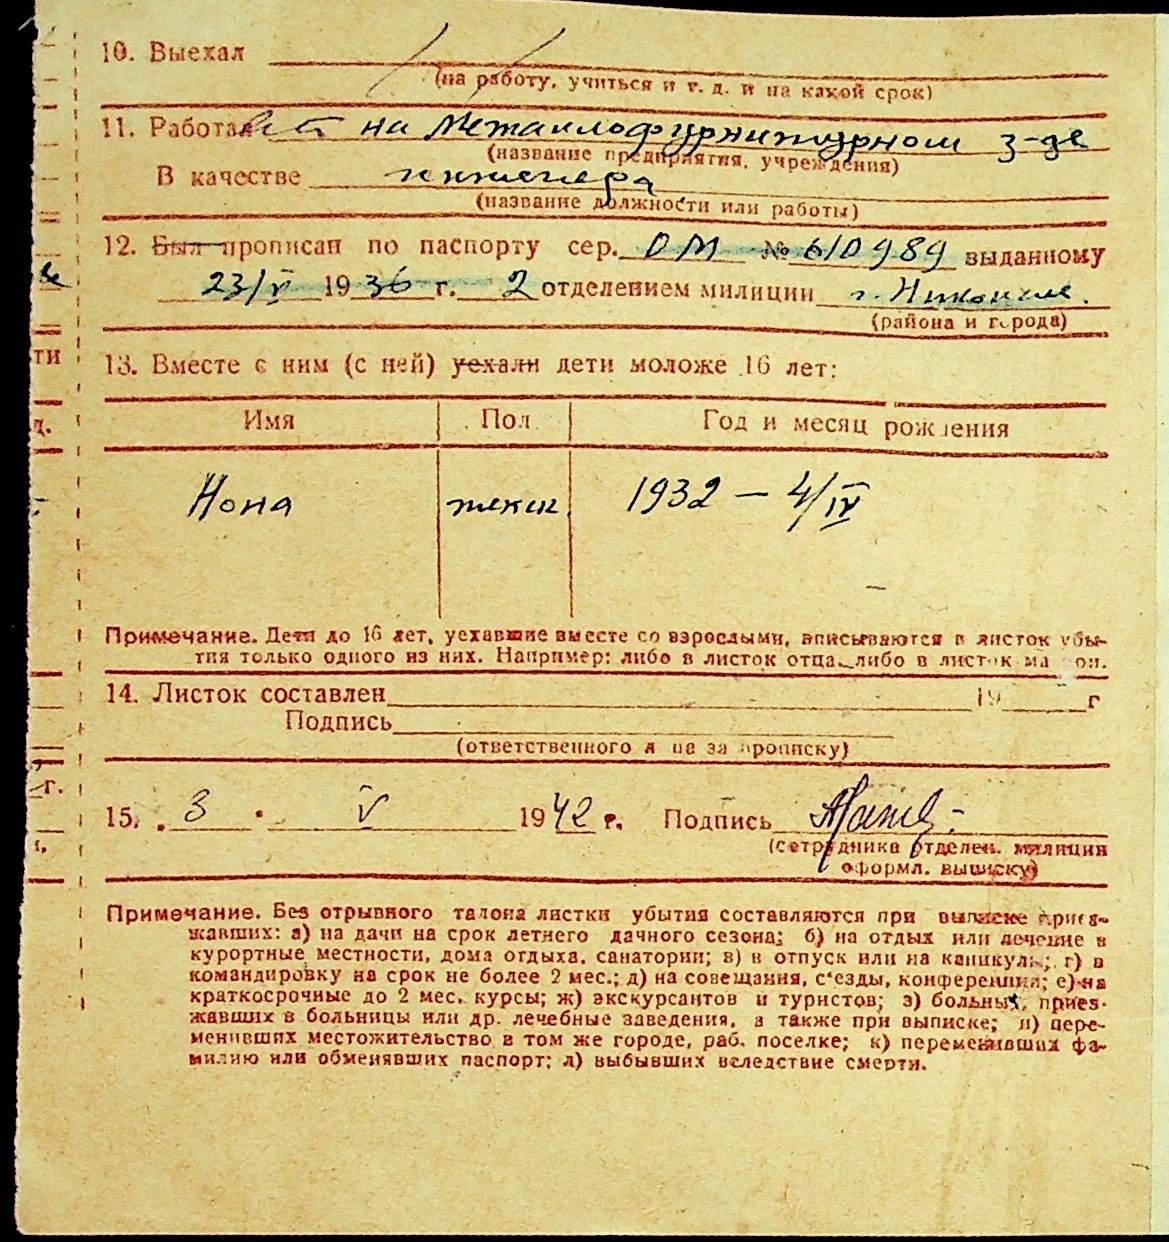 10. Выехал
(на работу, учиться и т. д. и на какой срок)
11. Работает на Металлофурнитурном з-де
(название предприятия, учреждения)
В качестве инженера
(название должности или работы)
12. Был прописан по паспорту сер. ОМ № 610989 выданному
23/V 1936 г. 2 отделением милиции г.
(района и города)
13. Вместе с ним (с ней) уехали дети моложе 16 лет:
Имя Пол Год и месяц рождения
Нона женск 1932 — 4/IV
Примечание. Дети до 16 лет, уехавшие вместе со взрослыми, вписываются в листок убы-
тия только одного из них. Например: либо в листок отца, либо в листок ма
14. Листок составлен 19 г
Подпись
(ответственного лица за прописку)
15. 3 • V 1942 г. Подпись
(сотрудника отделен. милиции
оформл. выписку)
Примечание. Без отрывного талона листки убытия составляются при выписке приез-
жавших: а) на дачи на срок летнего дачного сезона; б) на отдых или лечение в
курортные местности, дома отдыха, санатории; в) в отпуск или на каникулы; г) в
командировку на срок не более 2 мес.; д) на совещания, съезды, конференции; е) на
краткосрочные до 2 мес. курсы; ж) экскурсантов и туристов; з) больных, приез-
жавших в больницы или др. лечебные заведения, а также при выписке; и) пере-
менивших местожительство в том же городе, раб. поселке; к) переменивших фа-
милию или обменявших паспорт; л) выбывших вследствие смерти.